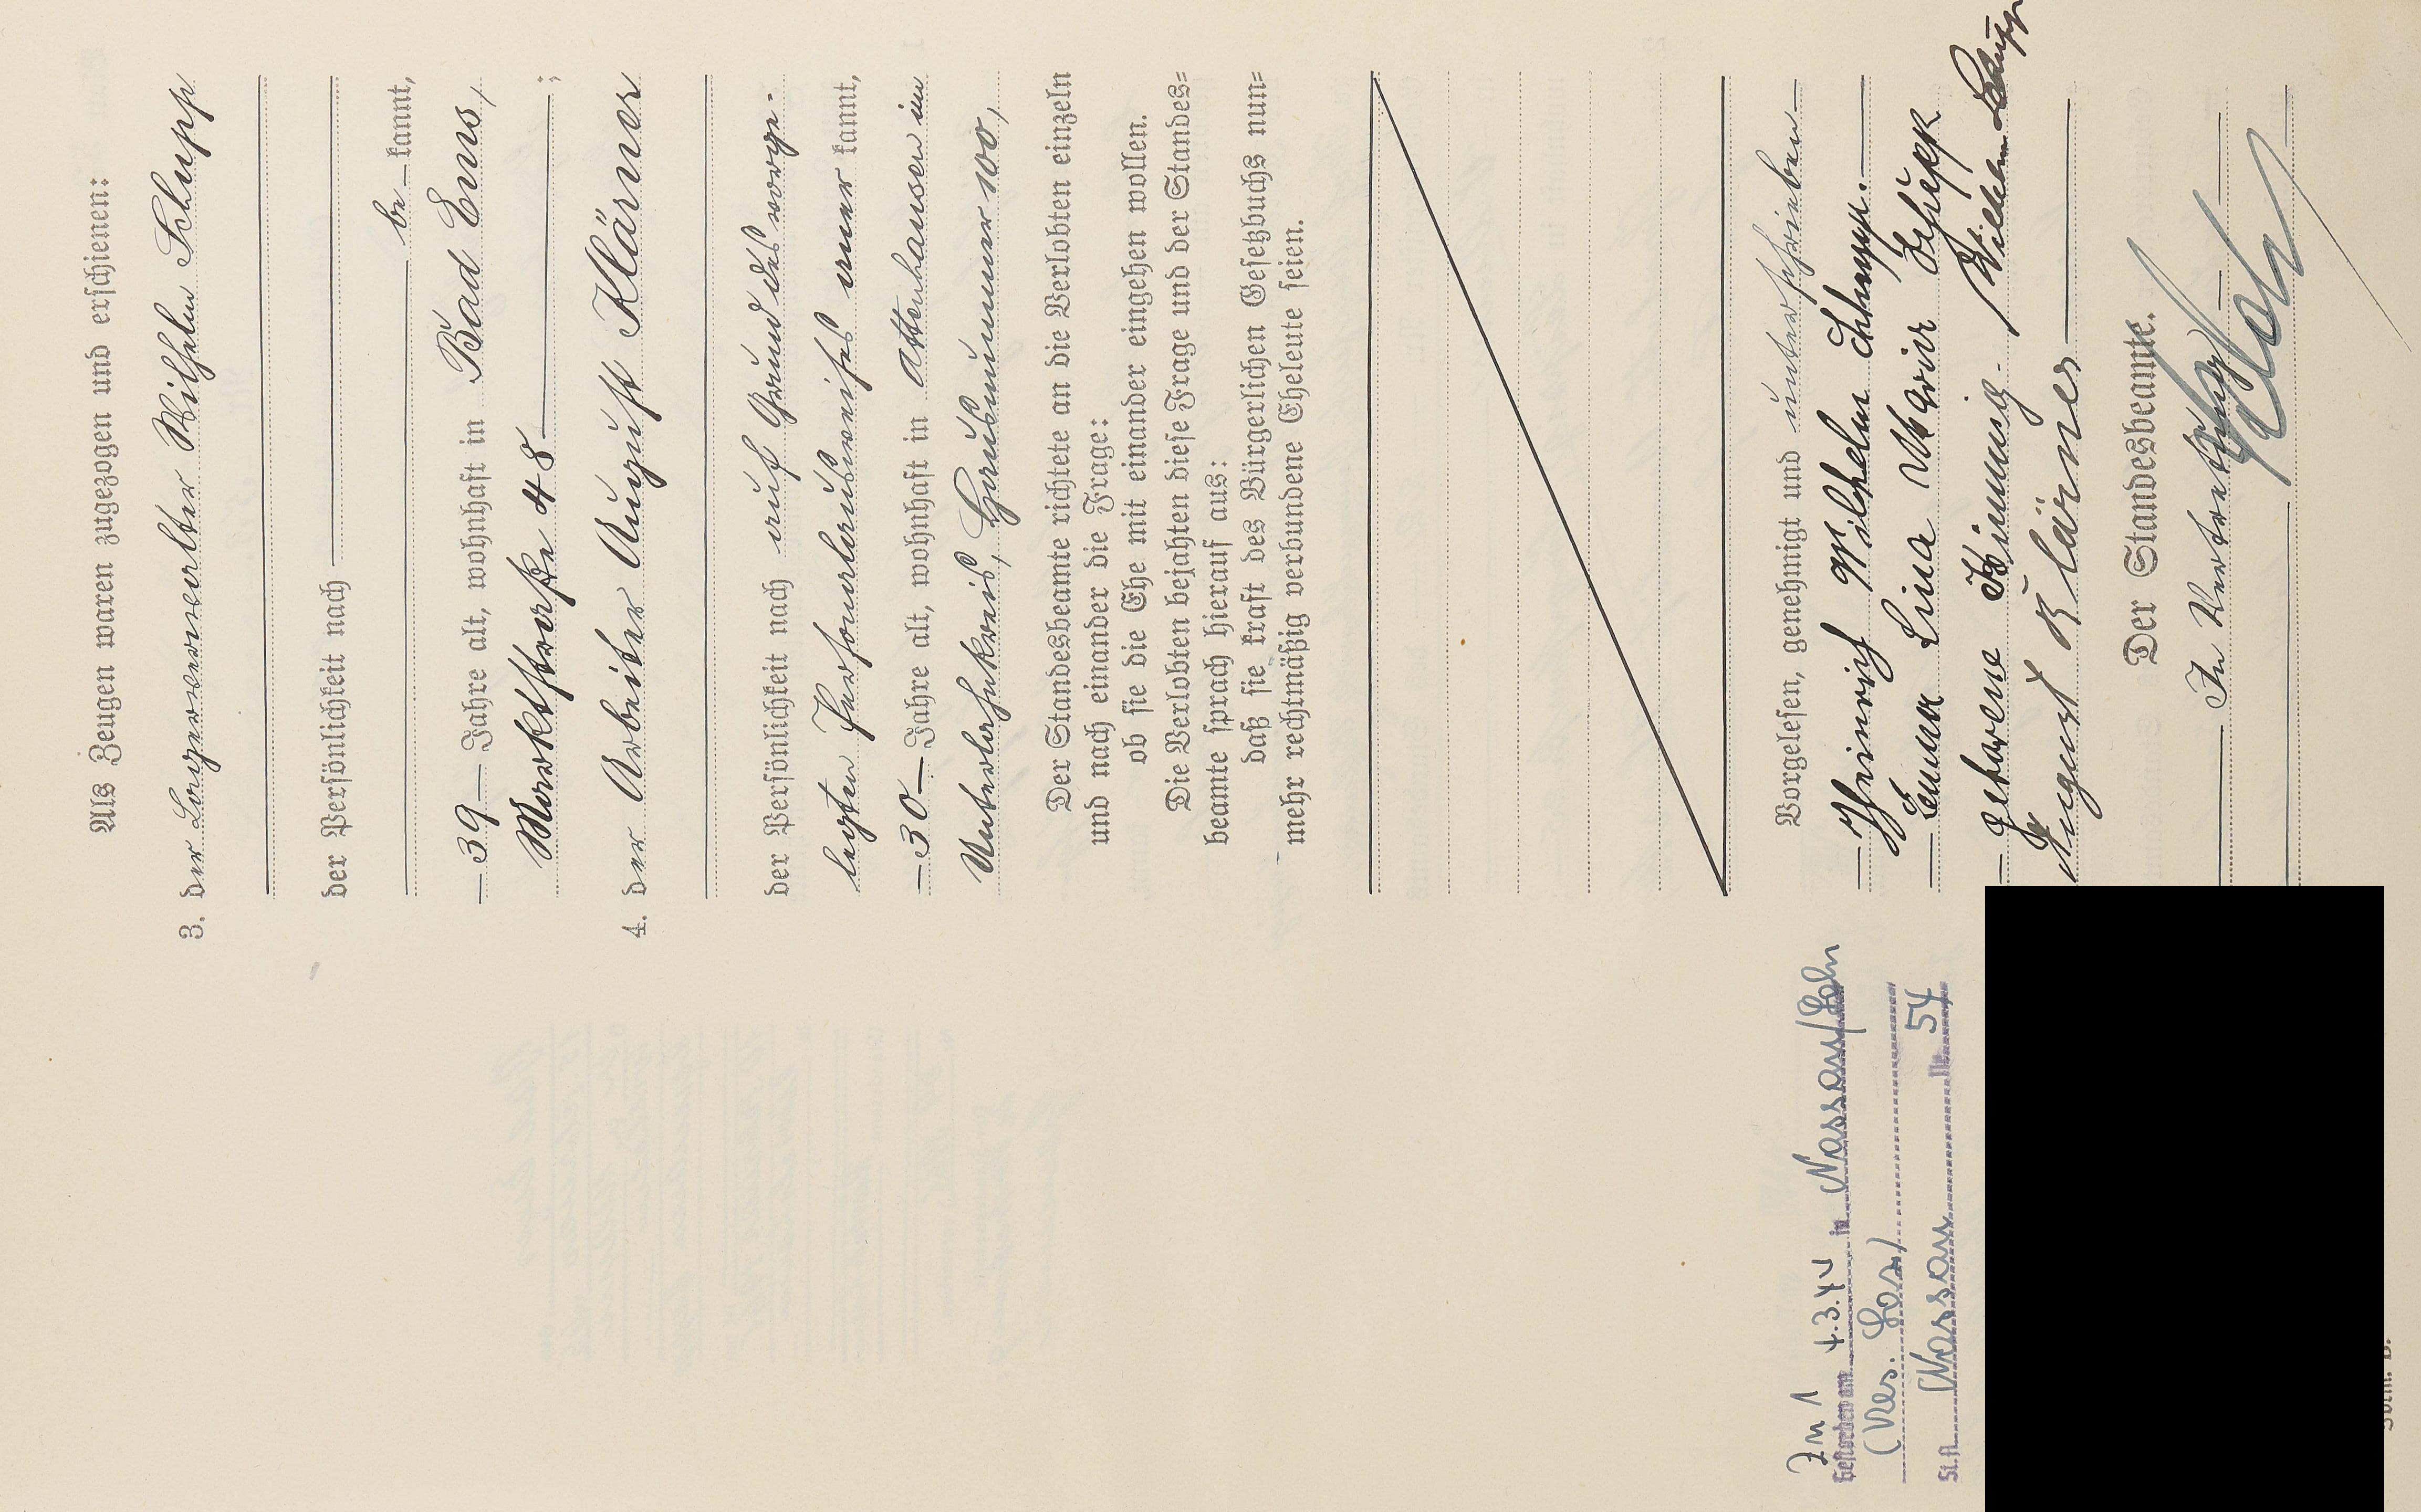 Als Zeugen waren zugezogen und erschienen:
3. der Lagerverwalter Wilhelm Schupp
der Persönlichkeit nach
be kannt,
39 Jahre alt, wohnhaft in Bad Ems,
Marktstraße 48 ;
4. der Arbeiter August Klärner
der Persönlichkeit nach auf Grund des vorge-
legten Personalausweises aner kannt,
30 Jahre alt, wohnhaft in Attenhausen im
Unterlahnkreis, Hausnummer 100,
Der Standesbeamte richtete an die Verlobten einzeln
und nach einander die Frage:
ob sie die Ehe mit einander eingehen wollen.
Die Verlobten bejahten diese Frage und der Standes=
beamte sprach hierauf aus:
daß sie kraft des Bürgerlichen Gesetzbuchs nun=
mehr rechtmäßig verbundene Eheleute seien.
Vorgelesen, genehmigt und unterschrieben
Heinrich Wilhelm Schupp.
Emma Lina Marie Schupp
geborene Wilhelm Schupp
August Klärner
Der Standesbeamte.
In Vertretung
Zu 1
Gestorben am 4.3.44 in Nassau/Lahn
(Res. Laz.)
St.A. Nassau Nr. 54